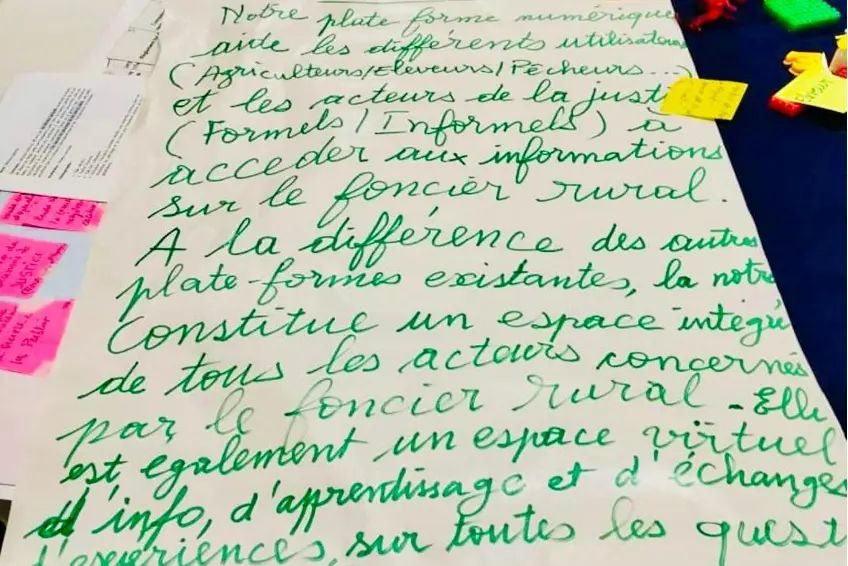 Notre plate forme numérique
aide les différents utilisateurs
(Agriculteurs/Eleveurs/Pêcheurs...)
et les acteurs de la justi
(Formels/Informels) à
acceder aux informations
sur le foncier rural.
A la différence des autres
plate-formes existantes, la notre
Constitue un espace intégré
de tous les acteurs concernés
par le foncier rural - Elle
est également un espace virtuel
d'info, d'apprentissage et d'échanges
d'expériences, sur toutes les quest